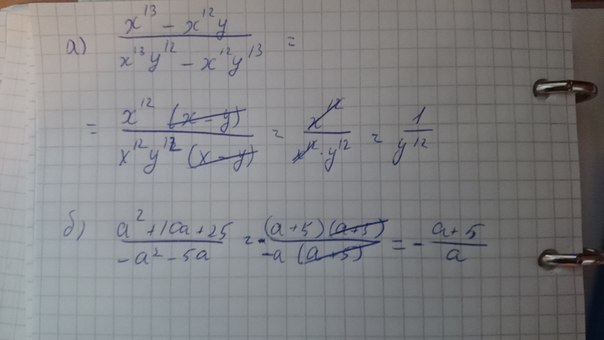 а) (x¹³ − x¹²y) / (x¹³y¹² − x¹²y¹³) =
= (x¹² (x − y)) / (x¹²y¹² (x − y)) = x¹² / (x¹² · y¹²) = 1 / y¹²
б) (a² + 10a + 25) / (−a² − 5a) = ((a + 5)(a + 5)) / (−a (a + 5)) = − (a + 5) / a